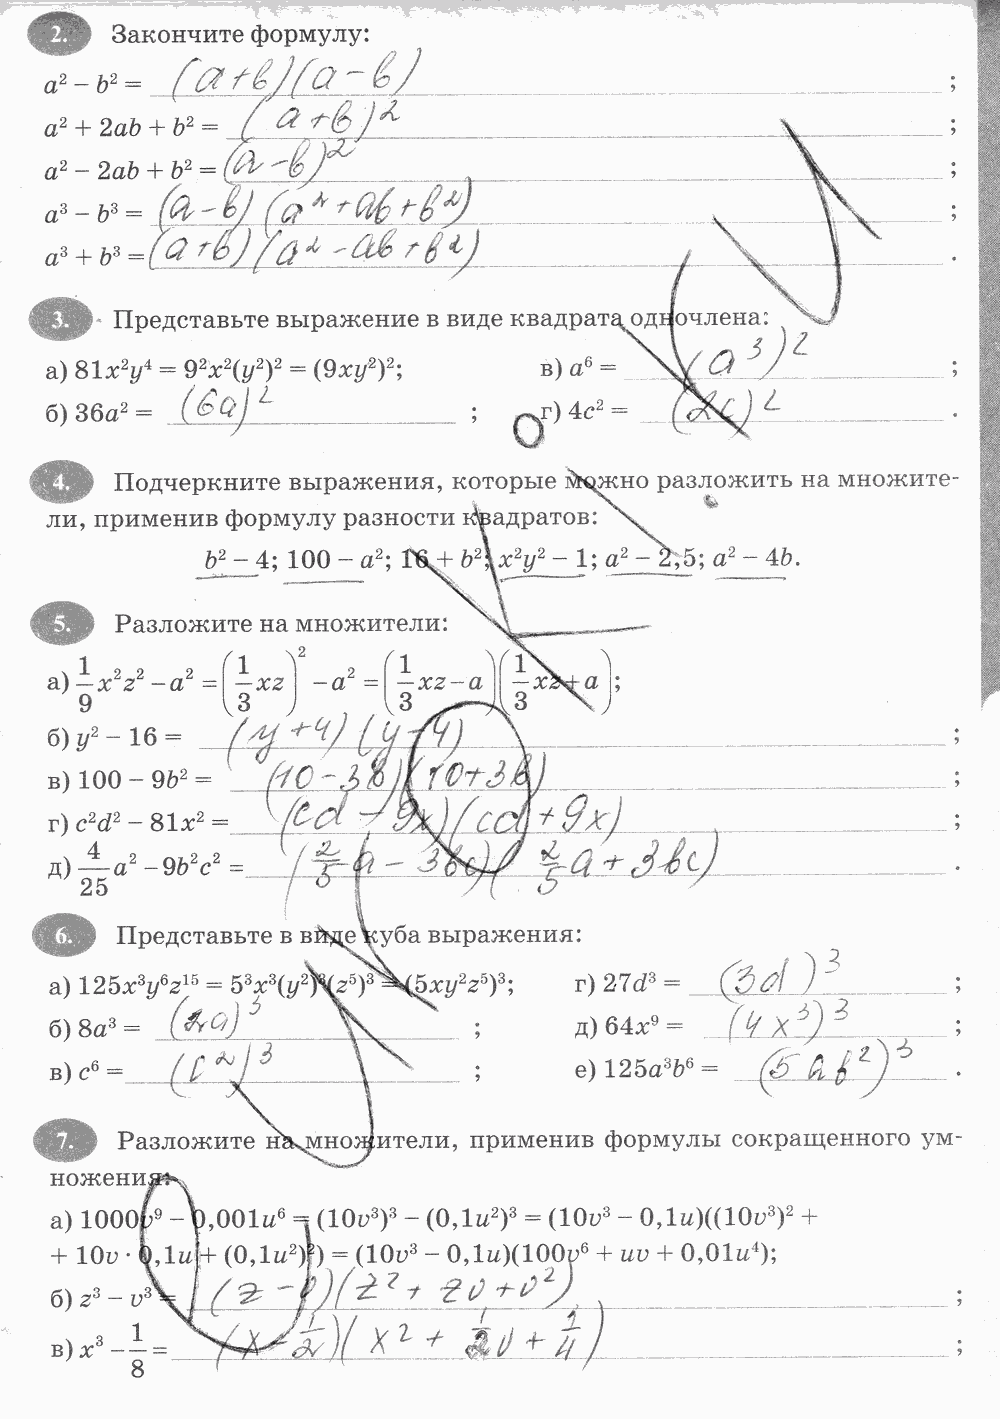 2. Закончите формулу:
a² − b² = (a+b)(a−b) ;
a² + 2ab + b² = (a+b)² ;
a² − 2ab + b² = (a−b)² ;
a³ − b³ = (a−b)(a²+ab+b²) ;
a³ + b³ = (a+b)(a²−ab+b²) .
3. Представьте выражение в виде квадрата одночлена:
а) 81x²y⁴ = 9²x²(y²)² = (9xy²)²; в) a⁶ = (a³)² ;
б) 36a² = (6a)² ; г) 4c² = (2c)² .
4. Подчеркните выражения, которые можно разложить на множите-
ли, применив формулу разности квадратов:
b² − 4; 100 − a²; 16 + b²; x²y² − 1; a² − 2,5; a² − 4b.
5. Разложите на множители:
а) 1/9 x²z² − a² = (1/3 xz)² − a² = (1/3 xz − a)(1/3 xz + a);
б) y² − 16 = (y+4)(y−4) ;
в) 100 − 9b² = (10−3b)(10+3b) ;
г) c²d² − 81x² = (cd − 9x)(cd + 9x) ;
д) 4/25 a² − 9b²c² = (2/5 a − 3bc)(2/5 a + 3bc) .
6. Представьте в виде куба выражения:
а) 125x³y⁶z¹⁵ = 5³x³(y²)³(z⁵)³ = (5xy²z⁵)³; г) 27d³ = (3d)³ ;
б) 8a³ = (2a)³ ; д) 64x⁹ = (4x³)³ ;
в) c⁶ = (c²)³ ; е) 125a³b⁶ = (5ab²)³ .
7. Разложите на множители, применив формулы сокращенного ум-
ножения:
а) 1000v⁹ − 0,001u⁶ = (10v³)³ − (0,1u²)³ = (10v³ − 0,1u)((10v³)² +
+ 10v · 0,1u + (0,1u²)²) = (10v³ − 0,1u)(100v⁶ + uv + 0,01u⁴);
б) z³ − v³ = (z − v)(z² + zv + v²) ;
в) x³ − 1/8 = (x − 1/2)(x² + 1/2 v + 1/4) ;